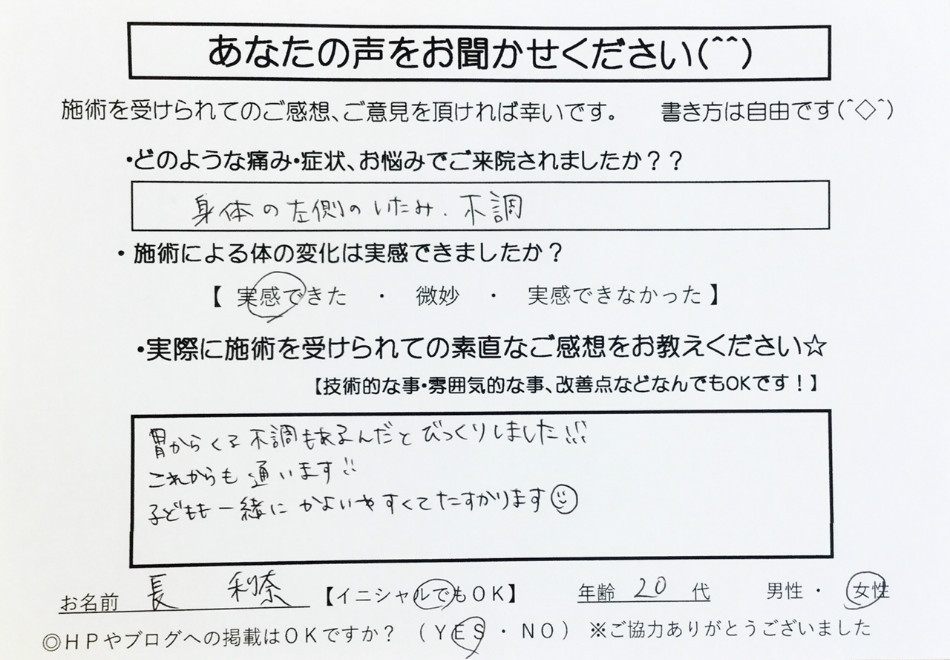 あなたの声をお聞かせください(^^)
施術を受けられてのご感想、ご意見を頂ければ幸いです。　書き方は自由です(^◇^)
・どのような痛み・症状、お悩みでご来院されましたか？？
身体の左側のいたみ．不調
・施術による体の変化は実感できましたか？
【 実感できた　・　微妙　・　実感できなかった 】
・実際に施術を受けられての素直なご感想をお教えください☆
【技術的な事・雰囲気的な事、改善点などなんでもOKです！】
胃からくる不調もあるんだとびっくりしました!!!
これからも通います!!
子どもも一緒にかよいやすくてたすかります☺
お名前　長　利奈　【イニシャルでもOK】　年齢　20　代　男性・女性
◎HPやブログへの掲載はOKですか？（YES・NO）※ご協力ありがとうございました